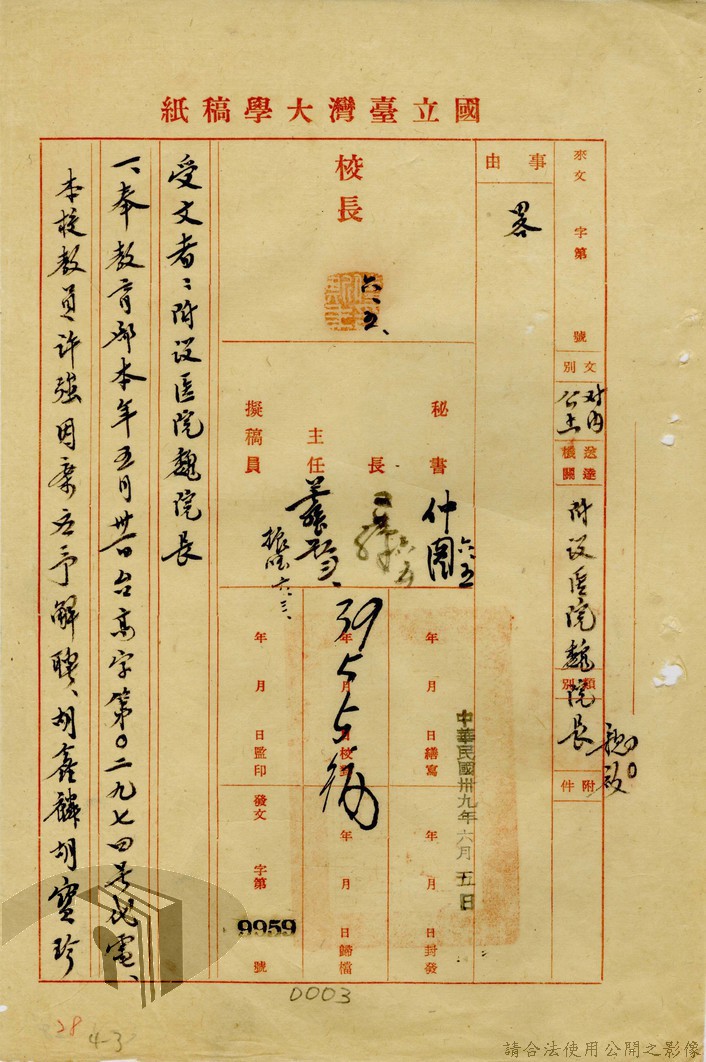 國立臺灣大學稿紙
來文 字第 號
文別 对内公土
送達機關 附设医院魏院長
類別
附件
事由
畧
校長
六、五、
秘書 仲圖 六、五
長 六、五
主任
擬稿員 六、三、
年 月 日繕寫
年 月 日校對
年 月 日監印
中華民國卅九年六月五日
39
年 月 日封發
年 月 日歸檔
發文 字第 9959 號
受文者：附设医院魏院長
一、奉教育部本年五月卅日台高字第0二九七四号代電、
本校教員许強因案应予解聘、胡鑫麟胡寶珍
0003
28
4-3
請合法使用公開之影像